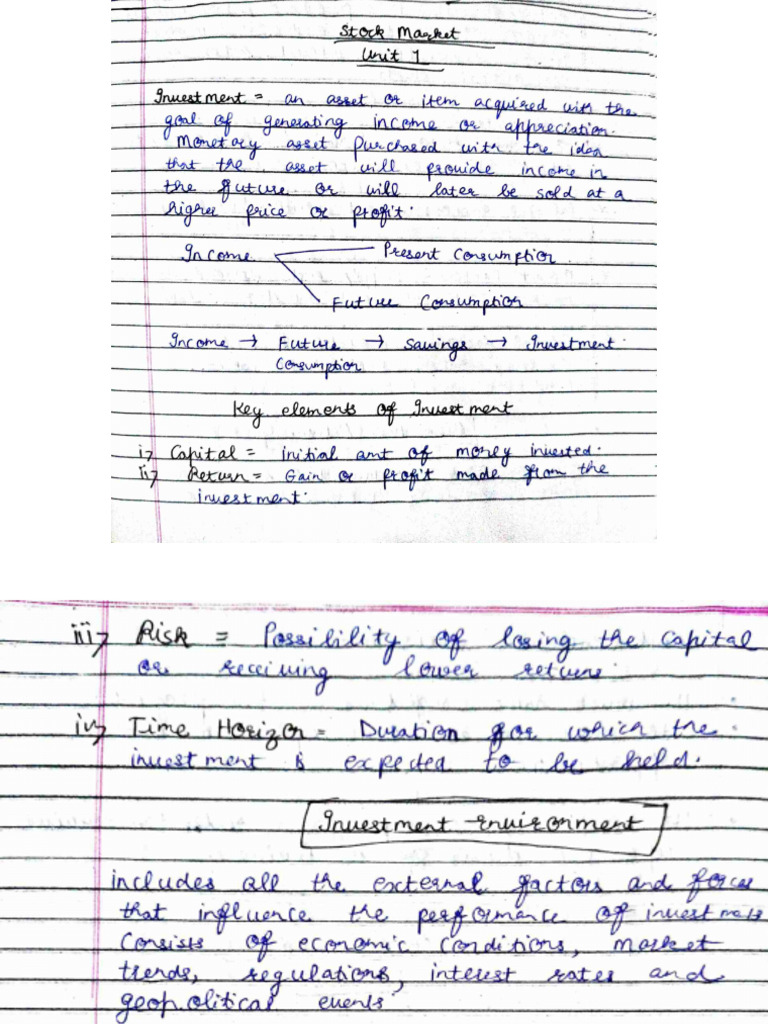 Stock Market
Unit 1
Investment = an asset or item acquired with the
goal of generating income or appreciation.
Monetary asset purchased with the idea
that the asset will provide income in
the future or will later be sold at a
higher price or profit.
Income Present Consumption
Future Consumption
Income → Future → Savings → Investment
Consumption
Key elements of Investment
i> Capital = initial amt of money invested.
ii> Return = Gain or profit made from the
investment.
iii> Risk = Possibility of losing the capital
or receiving lower return.
iv> Time Horizon = Duration for which the
investment is expected to be held.
Investment environment
includes all the external factors and forces
that influence the performance of investments
Consists of economic conditions, market
trends, regulations, interest rates and
geopolitical events